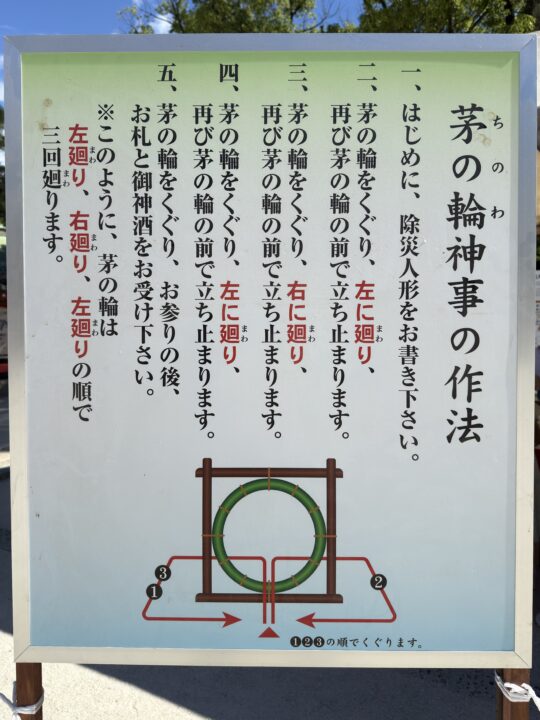 茅の輪神事の作法
ちのわ
一、はじめに、除災人形をお書き下さい。
二、茅の輪をくぐり、左に廻り、
まわ
再び茅の輪の前で立ち止まります。
三、茅の輪をくぐり、右に廻り、
まわ
再び茅の輪の前で立ち止まります。
四、茅の輪をくぐり、左に廻り、
まわ
再び茅の輪の前で立ち止まります。
五、茅の輪をくぐり、お参りの後、
お札と御神酒をお受け下さい。
※このように、茅の輪は
左廻り、右廻り、左廻りの順で
まわ まわ まわ
三回廻ります。
まわ
❸
❶
❷
❶❷❸の順でくぐります。